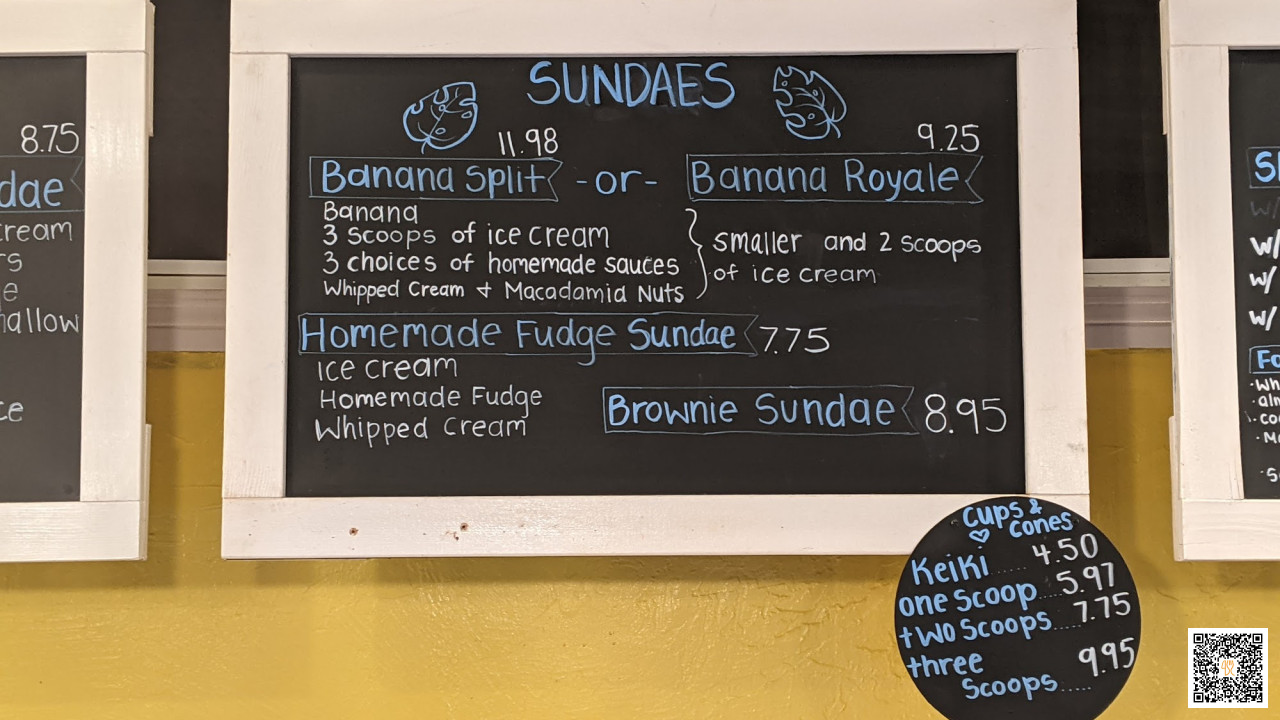 8.75
dae
ream
rs
e
allow
ce
SUNDAES
11.98
9.25
Banana Split
-or-
Banana Royale
Banana
3 Scoops of ice cream
3 choices of homemade sauces
Whipped Cream + Macadamia Nuts
smaller and 2 scoops
of ice cream
Homemade Fudge Sundae 7.75
Ice cream
Homemade Fudge
Whipped Cream
Brownie Sundae 8.95
Cups &
Cones
Keiki...... 4.50
one Scoop..... 5.97
two Scoops..... 7.75
three
Scoops..... 9.95
w/
w/
w/
w/